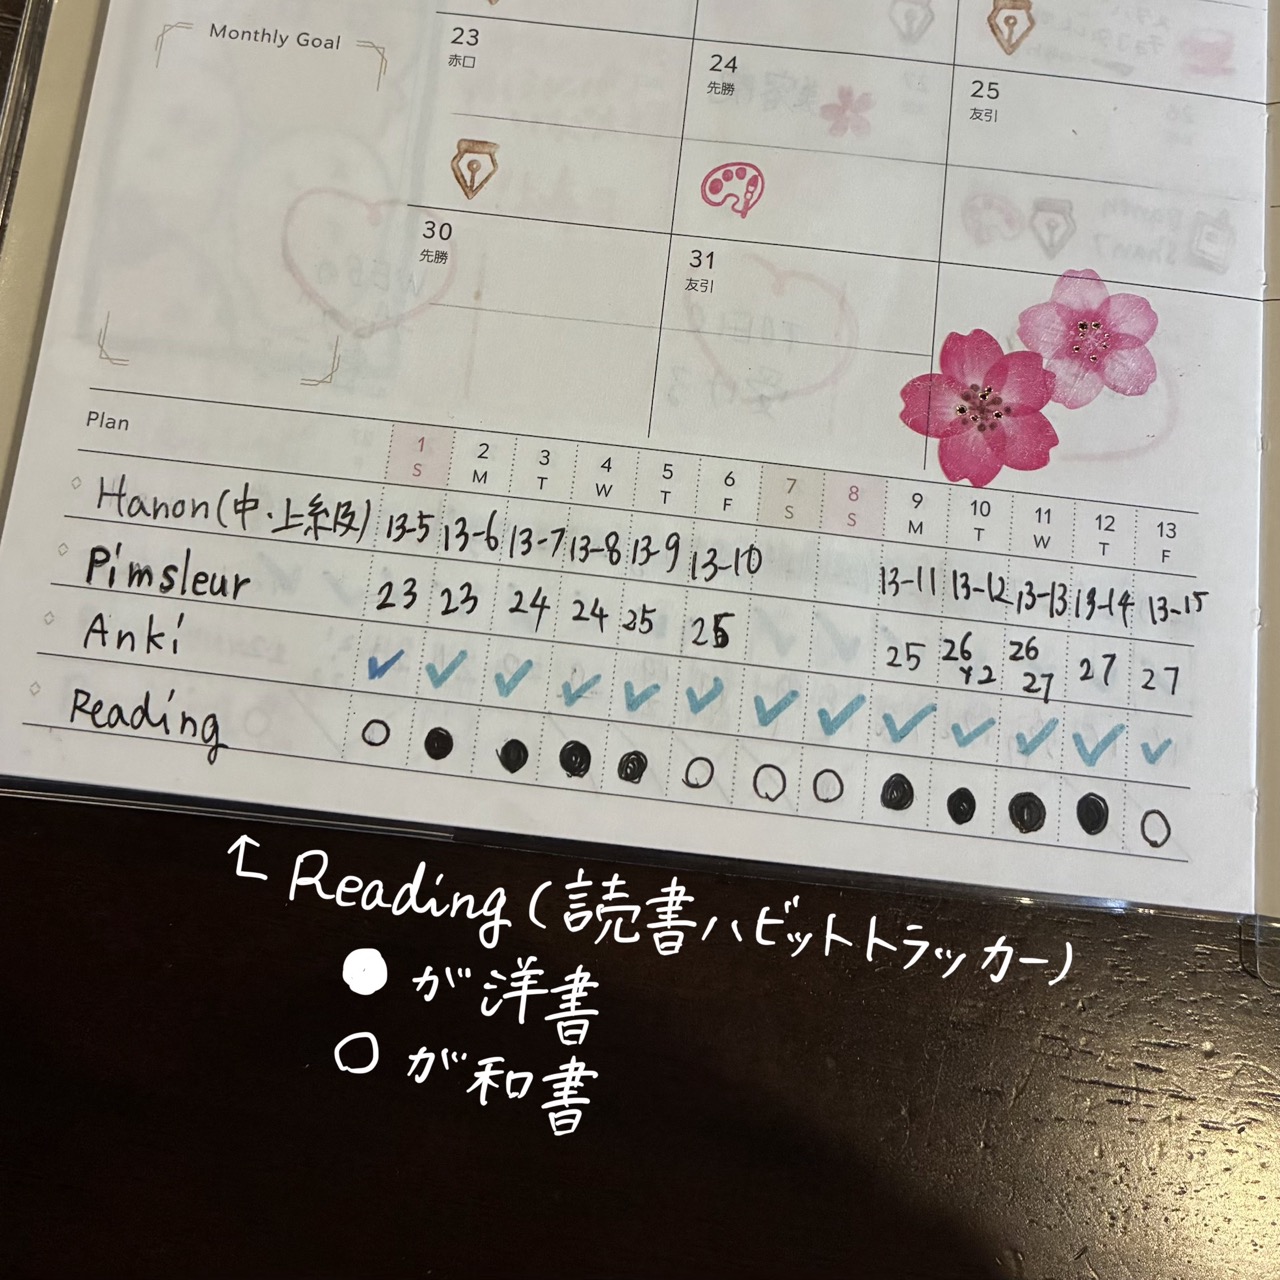 Monthly Goal
23
赤口
24
先勝
25
友引
30
先勝
31
友引
Plan
1 2 3 4 5 6 7 8 9 10 11 12 13
S M T W T F S S M T W T F
Hanon(中・上級) 13-5 13-6 13-7 13-8 13-9 13-10 13-11 13-12 13-13 13-14 13-15
Pimsleur 23 23 24 24 25 25 25 26 ×2 26 27 27 27
Anki ✓ ✓ ✓ ✓ ✓ ✓ ✓ ✓ ✓ ✓ ✓ ✓ ✓
Reading ○ ● ● ● ● ○ ○ ○ ● ● ● ● ○
← Reading(読書ハビットトラッカー)
●が洋書
○が和書